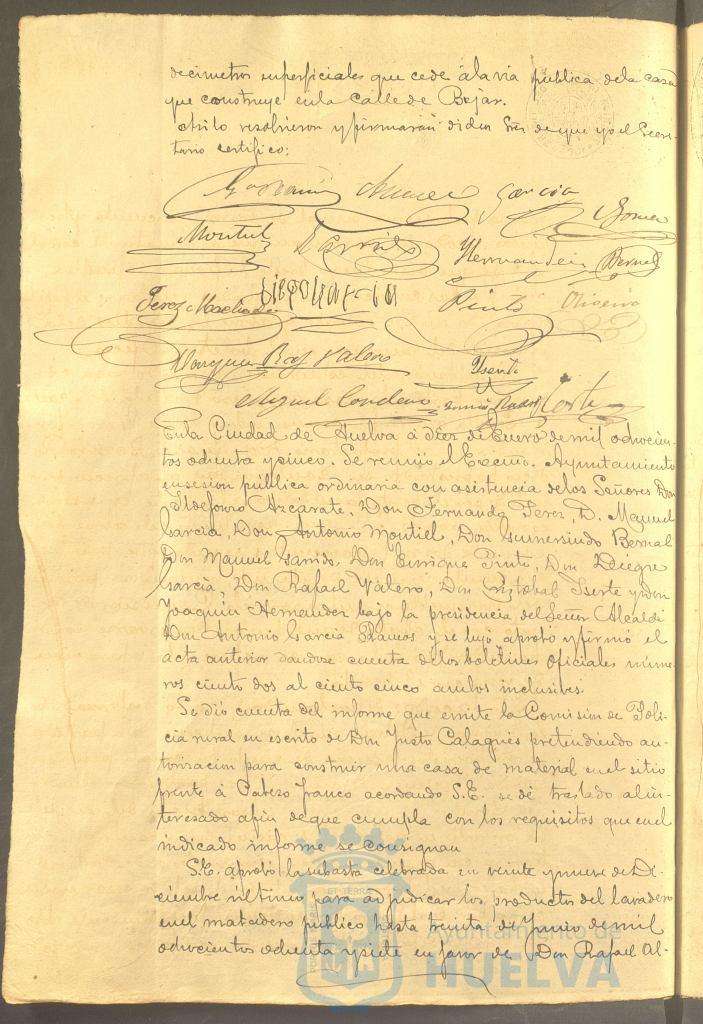 decimetros superficiales que cede á la via publica de la casa
que construye en la calle de Bejar.
Asi lo resolvieron y firmaran dichos Sres de que yo el Secre-
tario certifico:
Garcia
Gomez
Montiel Garrido Hernandez Bernal
Perez Machado Diego Garcia Pinto Oliveira
Marquez Raf Valero Yserte
Miguel Cordero Corte
En la Ciudad de Huelva á diez de Enero de mil ochocien-
tos ochenta y cinco. Se reunió el Excmo. Ayuntamiento
en sesion pública ordinaria con asistencia de los Señores Don
Ildefonso Azcárate, Don Fernando Perez, D. Manuel
Garcia, Don Antonio Montiel, Don Gumersindo Bernal
Don Manuel Garrido, Don Enrique Pinto, Don Diego
Garcia, Don Rafael Valero, Don Cristobal Iserte y Don
Joaquin Hernandez bajo la presidencia del Señor Alcalde
Don Antonio Garcia Ramos y se leyó, aprobó y firmó el
acta anterior dandose cuenta de los boletines oficiales núme-
ros ciento dos al ciento cinco ambos inclusives.
Se dió cuenta del informe que emite la Comision de Poli-
cia rural en escrito de Don Justo Calagués pretendiendo au-
torizacion para construir una casa de material en el sitio
frente á Cabezo franco acordando S.E. se dé traslado al in-
teresado afin de que cumpla con los requisitos que en el
indicado informe se consignan
S.E. aprobó la subasta celebrada en veinte y nueve de Di-
ciembre último para adjudicar los productos del lavadero
en el matadero público hasta treinta de Junio de mil
ochocientos ochenta y siete en favor de Don Rafael Al-
Ayuntamiento de
HUELVA